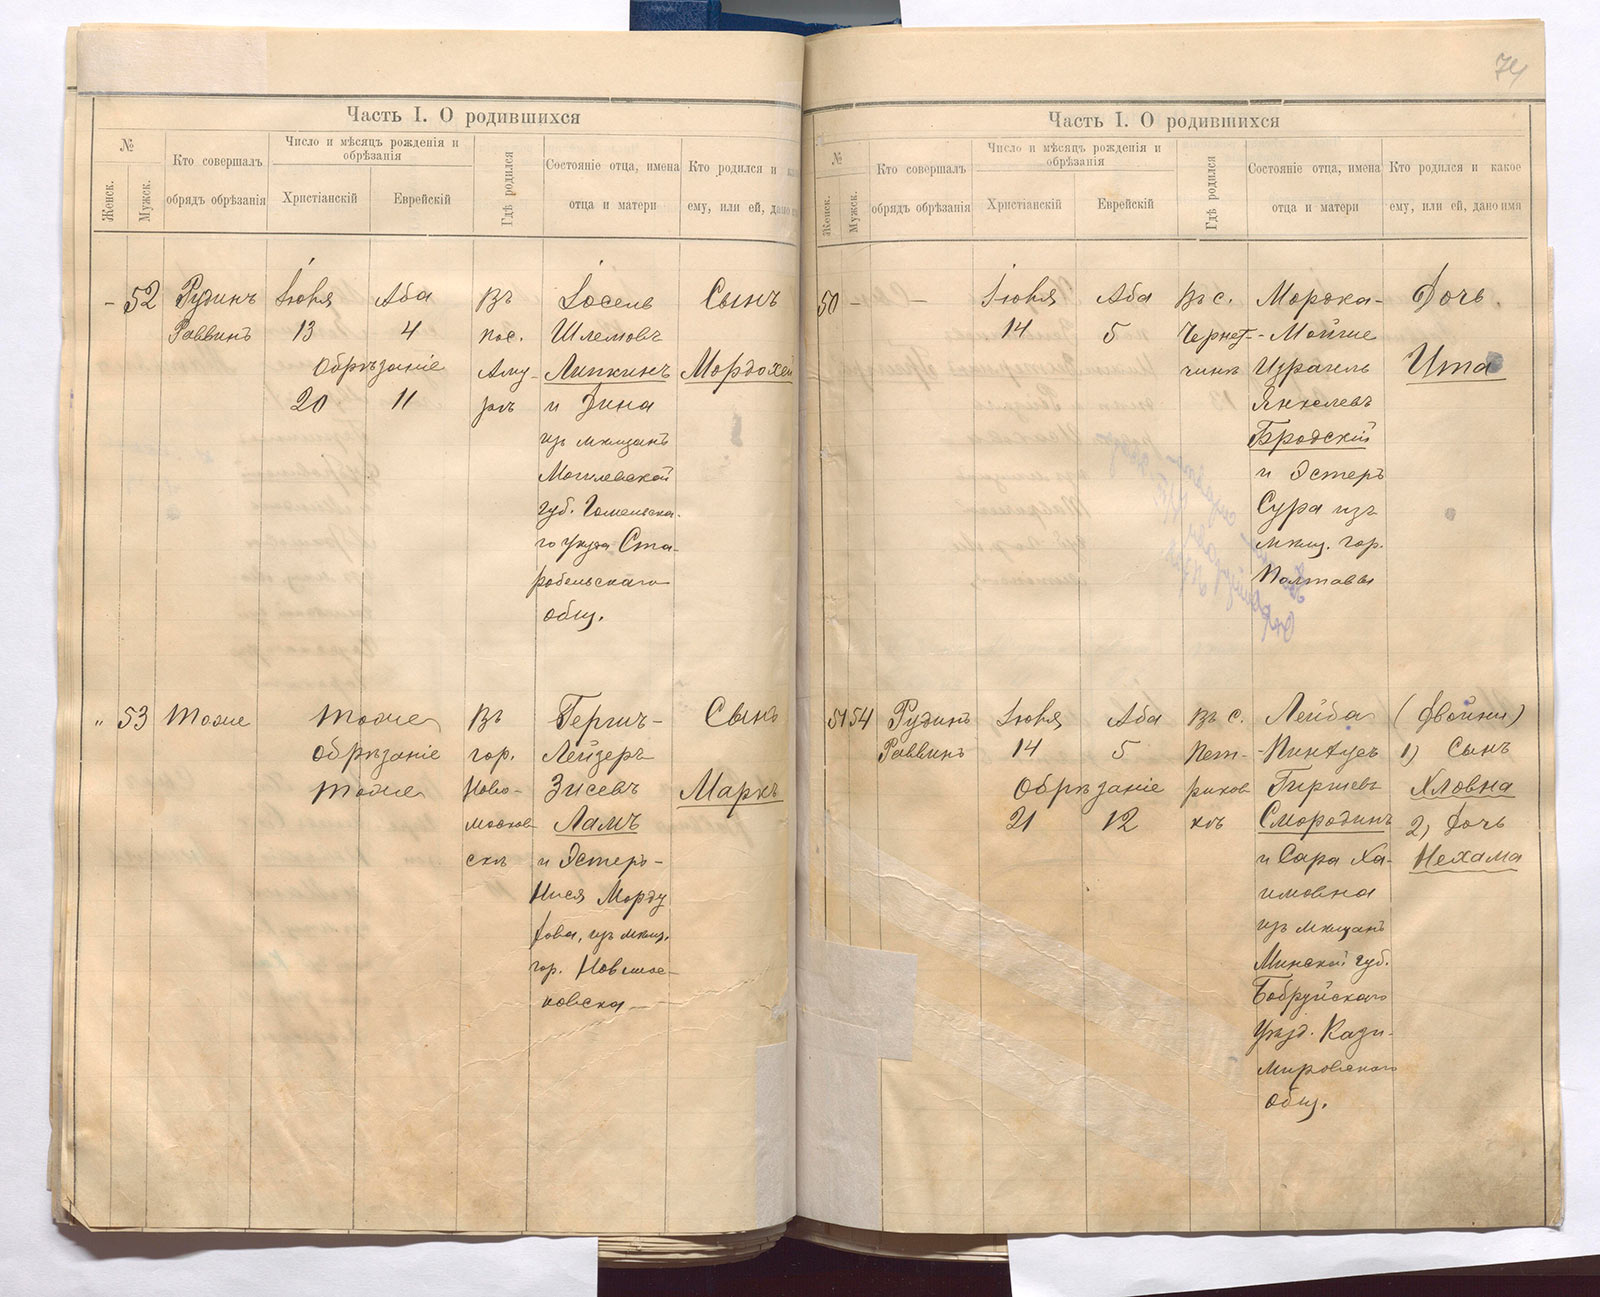 Часть I. О родившихся
№
Женск.
Мужск.
Кто совершалъ
обрядъ обрѣзанія
Число и мѣсяцъ рожденія и
обрѣзанія
Христіанскій
Еврейскій
Гдѣ родился
Состояніе отца, имена
отца и матери
Кто родился и
ему, или ей, дано
– 52
Рудинъ
Раввинъ
Іюля
13
Аба
4
Обрѣзаніе
20
11
Въ
пос.
Аму-
ръ
Іосель
Шлемовъ
Липкинъ
и Дина
изъ мѣщанъ
Могилевской
губ. Гомельска-
го уѣзда Ста-
робельскаго
общ.
Сынъ
Мордохей
" 53
тоже
тоже
Обрѣзаніе
тоже
Въ
гор.
Ново-
москов-
скѣ
Гершъ-
Лейзеръ
Зисевъ
Ламъ
и Эстеръ-
Нися Морду
гор.
Сынъ
Маркъ
74
Часть I. О родившихся
№
Женск.
Мужск.
Кто совершалъ
обрядъ обрѣзанія
Число и мѣсяцъ рожденія и
обрѣзанія
Христіанскій
Еврейскій
Гдѣ родился
Состояніе отца, имена
отца и матери
Кто родился и какое
ему, или ей, дано имя
50 – –
Іюля
14
Аба
5
Въ с.
Чернет-
чинѣ
Мордка-
-Мойше
Израиль
Янкелевъ
Бродскій
и Эстеръ
Сура изъ
мѣщ. гор.
Полтавы
Дочь.
Ита
51 54
Рудинъ
Раввинъ
Іюля
14
Аба
5
Обрѣзаніе
21
12
Въ с.
Пет-
риков
кѣ
Лейба
-Пинхусъ
Гиршевъ
Смородинъ
и Сара Ха-
имовна
изъ мѣщанъ
Минской губ.
Бобруйскаго
Уѣзд. Кази-
мировскаго
общ.
(Двойни)
1) Сынъ
Хловна
2) Дочь
Нехама